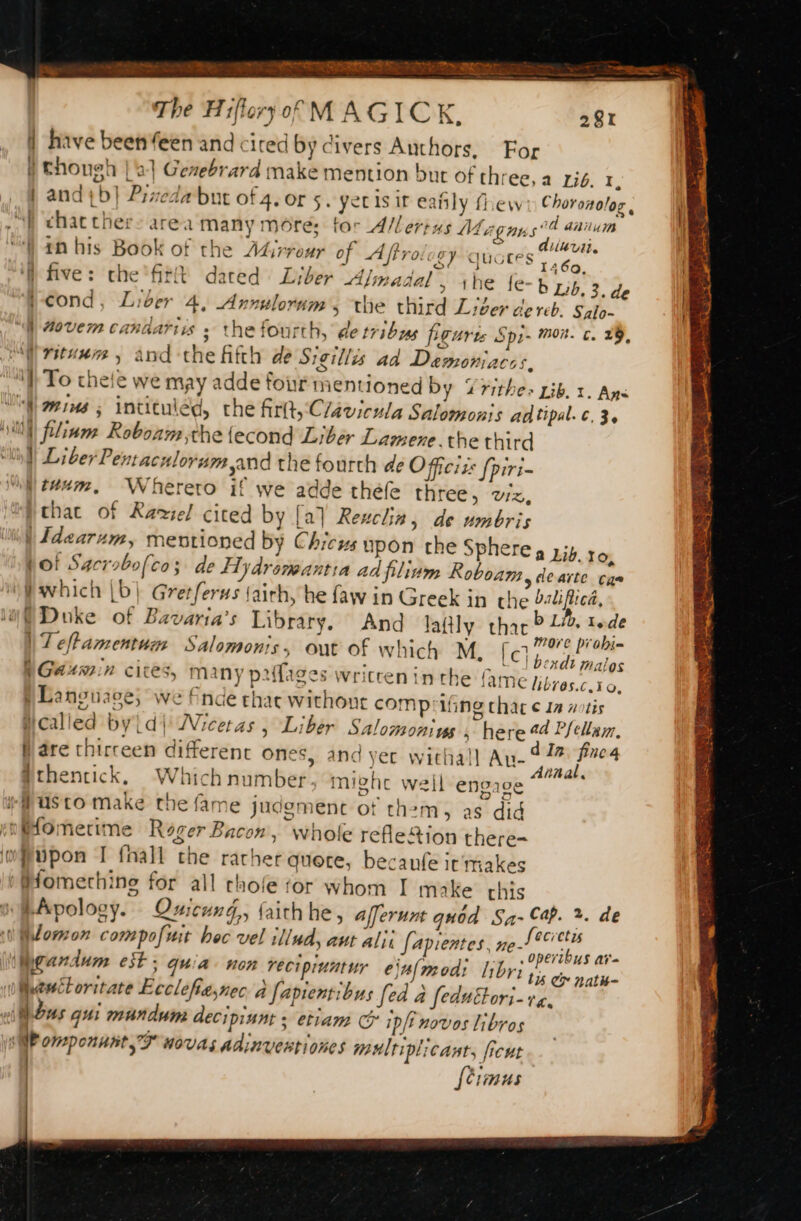 The Hiſtory of MAGICK, 281
have been ſeen and cited by divers Authors. For
though [a] Genebrard make mention but of three,
and [b] Pineda but of 4. or 5. yet is it eaſily ſhewn
that there are a many more; for Albertus Magnus
in his Book of the Mirrour of Aſtrology quotes
five: the firſt dated Liber Almadal, the ſe-
cond, Liber 4. Annulorum, the third Liber de reb.
novem candariis; the fourth, de tribus figuris Spi-
rituum, and the fifth de Sigillis ad Demoniacos.
To theſe we may adde four mentioned by Trithe-
mius; intituled, the firſt, Clavicula Salomonis ad
filium Roboam, the ſecond Liber Lamene. the third
Liber Pentaculorum, and the fourth de Officiis ſpiri-
tuum. Whereto if we adde theſe three, viz.
that of Raziel cited by [a] Reuclin, de umbris
Idearum, mentioned by Chicus upon the Sphere
of Sacroboſco; de Hydromantia ad filium Roboam,
which [b] Gretſerus ſaith, he ſaw in Greek in the
Duke of Bavaria's Library. And laſtly that
Teſtamentum Salomonis, out of which M. [c]
Gaumin cites, many paſſages written in the ſame
Language, we finde that without compriſing that
called by [d] Nicetas, Liber Salomonius, here
are thirteen different ones, and yet withall Au-
thentick. Which number, might well engage
us to make the ſame judgment of them, as did
ſometime Roger Bacon, whoſe reflection there-
upon I ſhall the rather quote, becauſe it makes
ſomething for all thoſe for whom I make this
Apology. Quicunq, ſaith he, aſſerunt quòd Sa-
lomon compoſuit hoc vel illud, aut alii ſapientes, ne-
gandum eſt; quia non recipiuntur ejuſmodi libri
auctoritate Eccleſiæ, nec à ſapientibus ſed à ſeductori-
bus qui mundum decipiunt; etiam & ipſi novos libros
componunt, & novas adinventiones multiplicant, ſicut
ſcimus
a Lib. 1.
Choronolog.
ad annum
diluvii.
1460.
b Lib. 3. de
Salo-
mon. c. 29.
Lib. 1. An-
tipal. c. 3.
a Lib. 10.
de arte ca-
baliſticâ.
b Lib. 1. de
more prohi-
bendi malos
libros. c. 10.
c In notis
ad Pſellum.
d In fine 4
Annal.
Cap. 2. de
ſecretis
operibus ar-
tis & natu-
ræ.